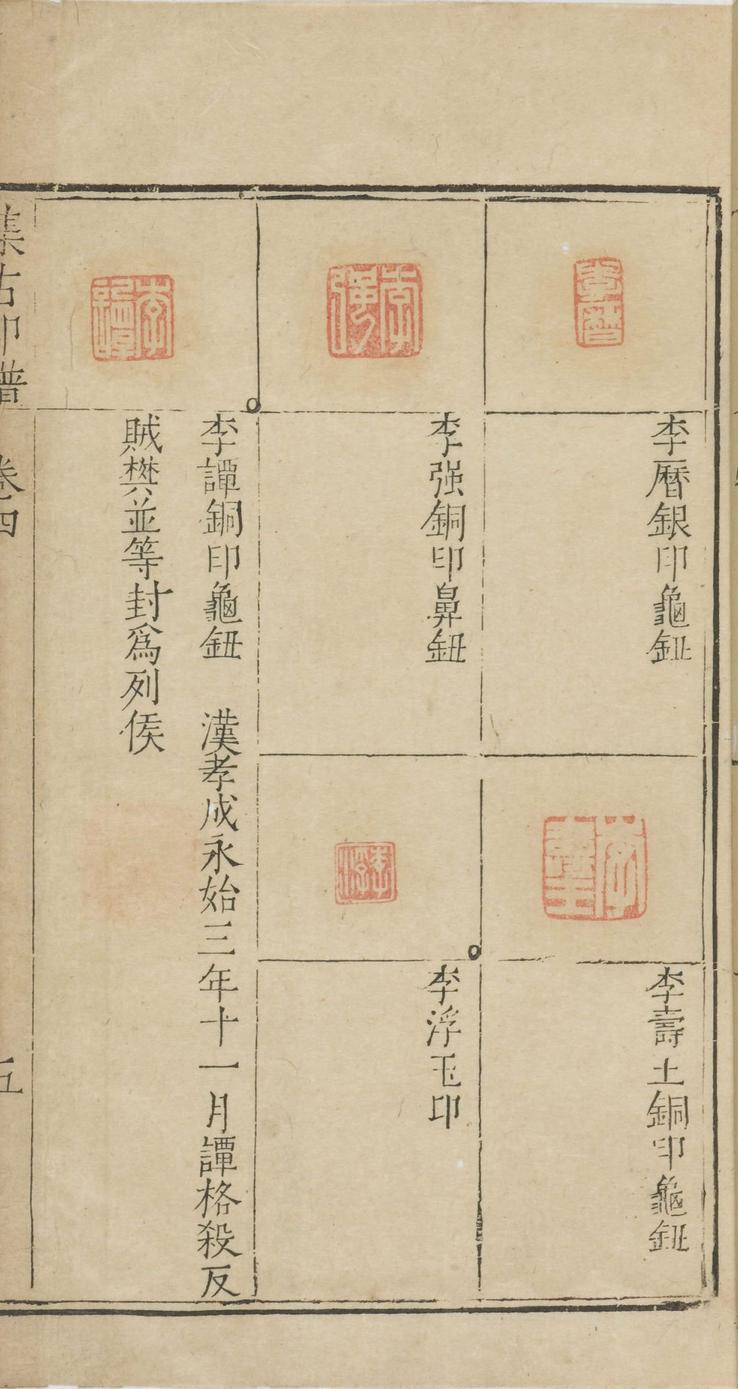 李曆
李曆銀印龜鈕
李壽王
李壽土銅印龜鈕
李強
李強銅印鼻鈕
李浮
李浮玉印
李譚
李譚銅印龜鈕　漢孝成永始三年十一月譚格殺反
賊樊並等封爲列侯
集古印譜　卷四　五